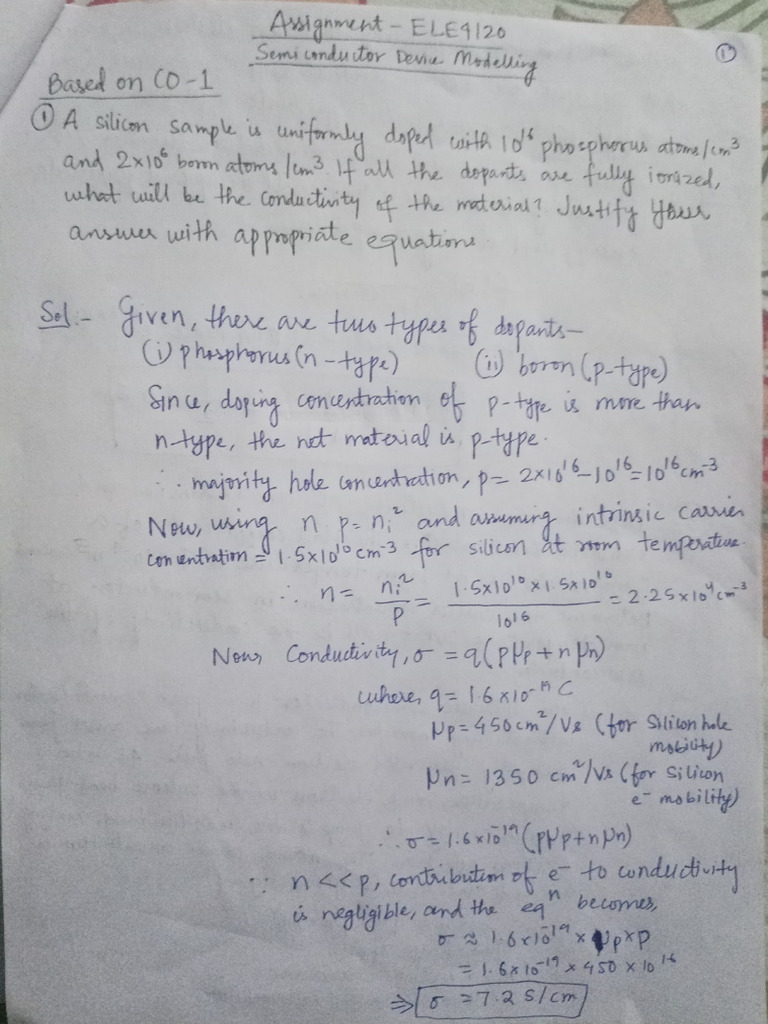 Assignment - ELE4120
Semiconductor Device Modelling
①
Based on CO-1
① A silicon sample is uniformly doped with 10¹⁶ phosphorus atoms/cm³
and 2×10⁶ boron atoms/cm³. If all the dopants are fully ionized,
what will be the conductivity of the material? Justify your
answer with appropriate equations
Sol.- Given, there are two types of dopants—
(i) phosphorus (n-type) (ii) boron (p-type)
Since, doping concentration of p-type is more than
n-type, the net material is p-type.
∴ majority hole concentration, p = 2×10¹⁶-10¹⁶=10¹⁶cm⁻³
Now, using n p = nᵢ² and assuming intrinsic carrier
concentration = 1.5×10¹⁰cm⁻³ for silicon at room temperature.
∴ n = nᵢ²/p = 1.5×10¹⁰×1.5×10¹⁰/10¹⁶ = 2.25×10⁴cm⁻³
Now, Conductivity, σ = q(pμp+nμn)
where, q = 1.6×10⁻¹⁹ C
μp = 450cm²/Vs (for Silicon hole
mobility)
μn = 1350 cm²/Vs (for Silicon
e⁻ mobility)
∴ σ = 1.6×10⁻¹⁹(pμp+nμn)
∵ n<<p, contribution of e⁻ to conductivity
is negligible, and the eqⁿ becomes,
σ ≈ 1.6×10⁻¹⁹×μp×p
= 1.6×10⁻¹⁹×450×10¹⁶
⇒ σ = 7.2 S/cm